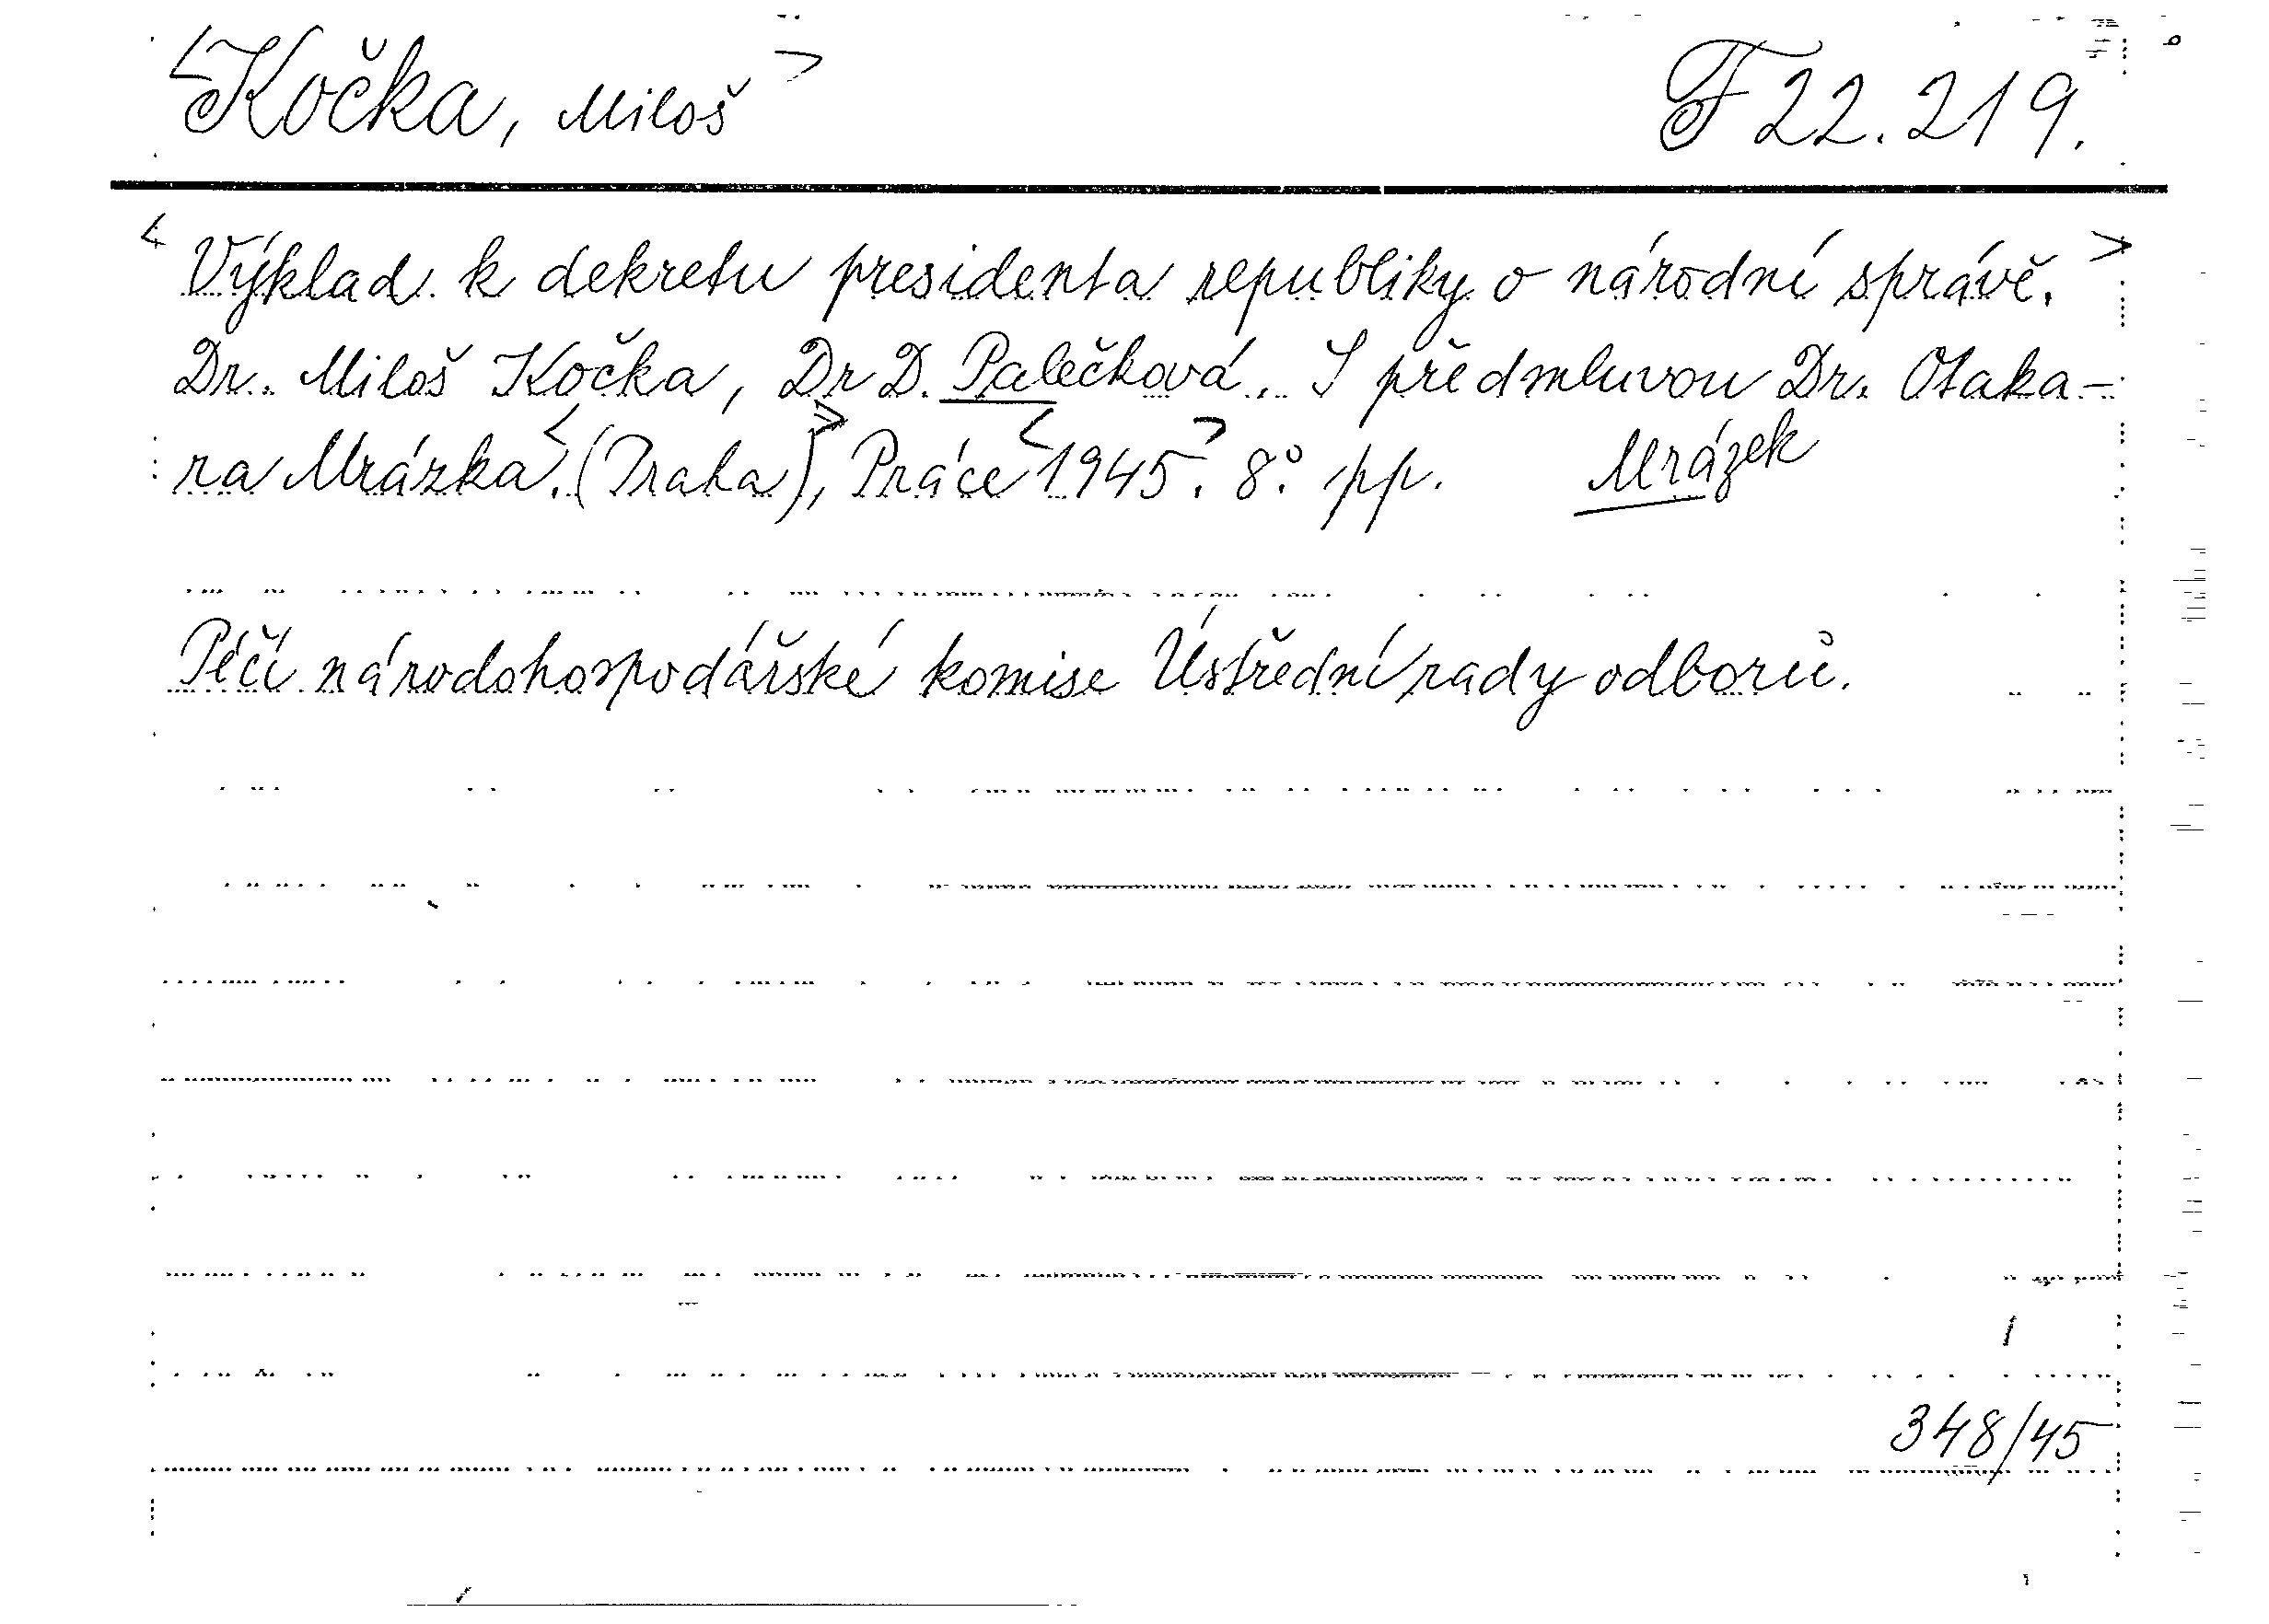 <Kočka, Miloš> F 22.219.
<Výklad k dekretu presidenta republiky o národní správě.>
Dr. Miloš Kočka, Dr D. Palečková. S předmluvou Dr. Otaka-
ra Mrázka. <(Praha)>, Práce <1945>. 8.° pp. Mrázek
Péčí národohospodářské komise Ústřední rady odborů.
348/45